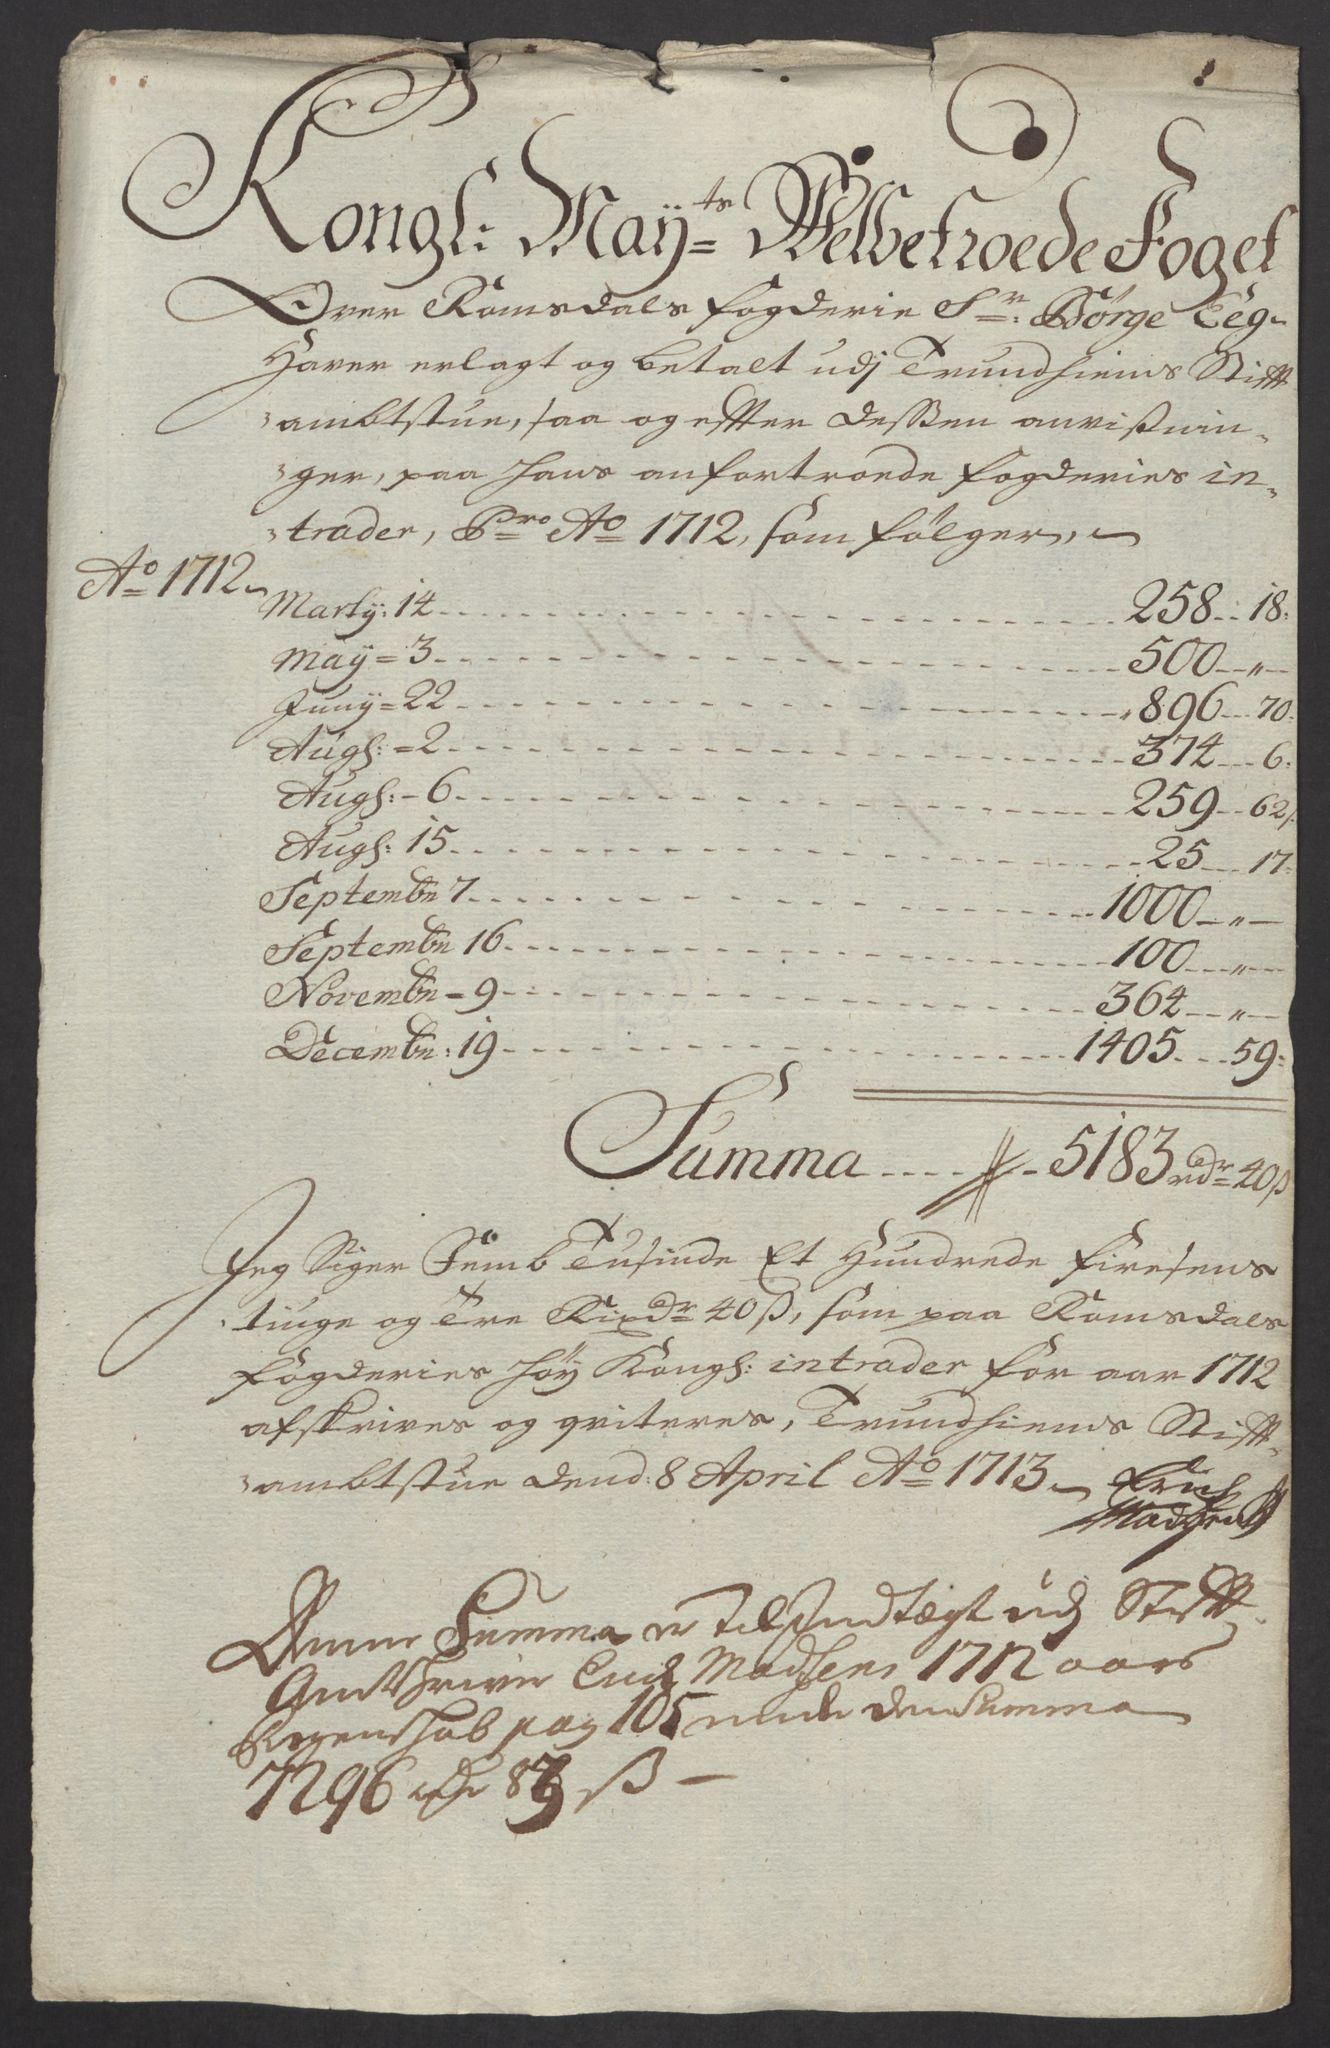 Kongl: Maÿ=ts Welbetroede Foget
Over Romsdals fogderie Sr. Børge Eeg
Haver erlagt og betalt udj Trundhiems Stifft
ambtstue, saa og effter desßen anvißnin-
ger, paa hans anfortroede fogderies in-
trader, Pro Ao 1712, som følger,
Ao 1712
Martÿ: 14 258 .. 18:
Maÿ = 3 500 „
Junÿ = 22 896 .. 70:
Augs: = 2 374 .. 6:
Augs: - 6 259 .. 62ß
Augs: 15 25 .. 17:
Septembr 7 1000 „
Septembr 16 100 „
Novembr = 9 364 „
Decembr: 19 1405 .. 59:
Summa 5183 rdr 40ß
Jeg Siger Femb Tusinde Et Hundrede firesens
tiuge og Tre Rixdr 40ß, som paa Romsdals
fogderies höÿ Kongl: intrader for aar 1712
afskrives og qviteres, Trundhiems Stifft
ambtstue dend: 8 April Ao 1713 Erich
Madsen
Denne Summa er til Indtægt udj Stifft
Amtskriver Erich Madsens 1712 aars
Regenskab pag 105 under den Summa
7296 rdr ß